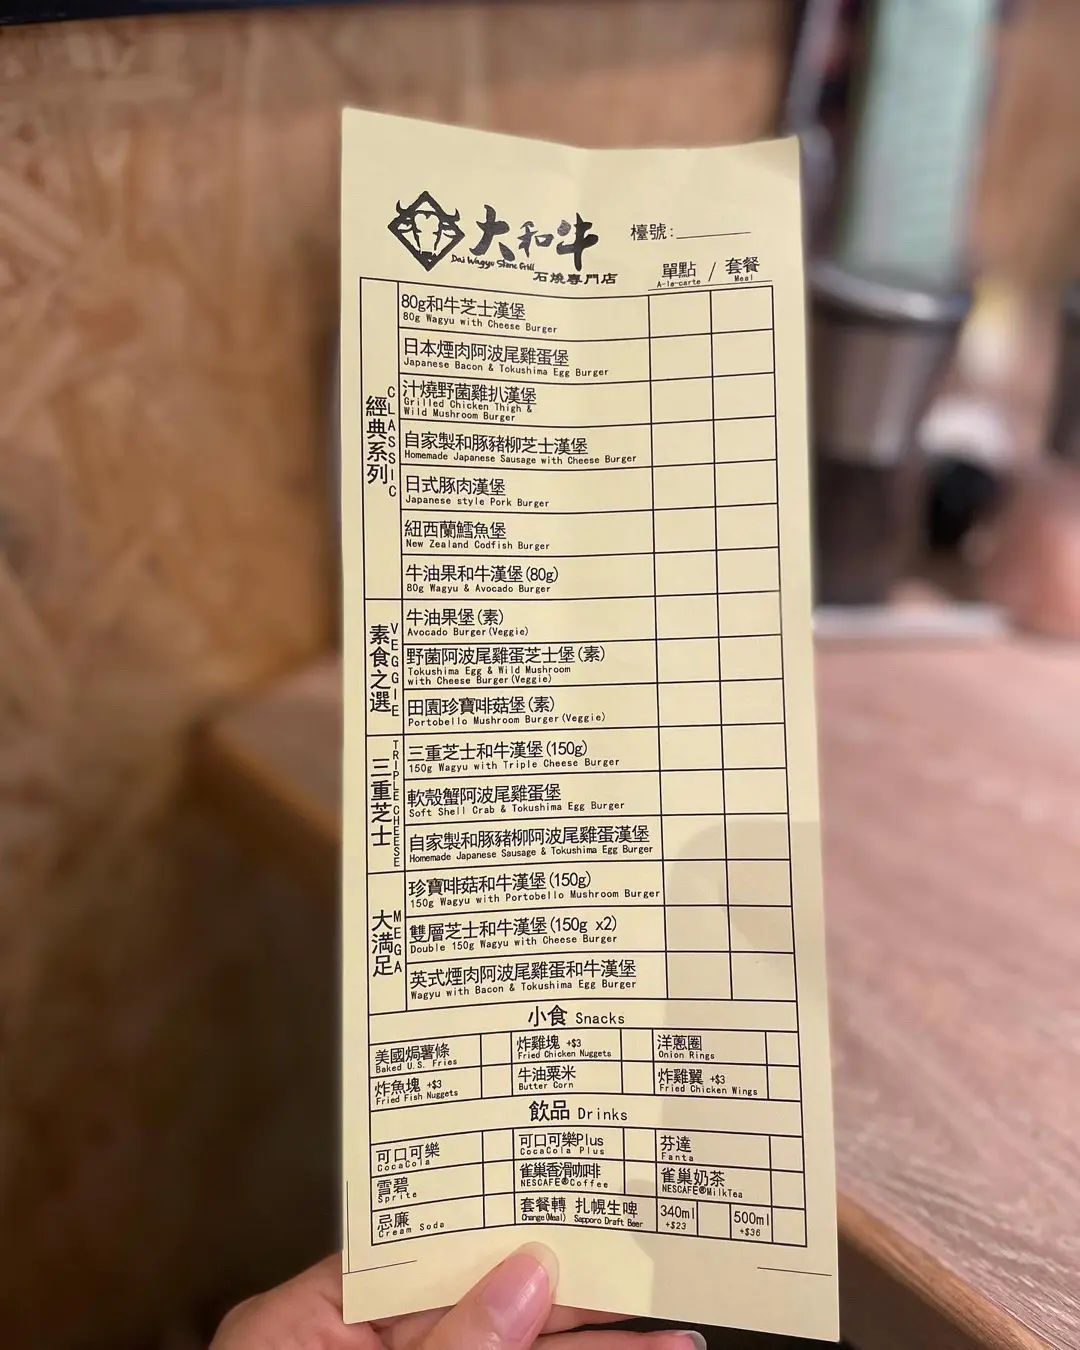 大和牛
Dai Wagyu Stone Grill
石燒專門店
檯號:
單點 / 套餐
A-le-carte Meal
經典系列
CLASSSIC
80g和牛芝士漢堡
80g Wagyu with Cheese Burger
日本煙肉阿波尾雞蛋堡
Japanese Bacon & Tokushima Egg Burger
汁燒野菌雞扒漢堡
Grilled Chicken Thigh &
Wild Mushroom Burger
自家製和豚豬柳芝士漢堡
Homemade Japanese Sausage with Cheese Burger
日式豚肉漢堡
Japanese style Pork Burger
紐西蘭鱈魚堡
New Zealand Codfish Burger
牛油果和牛漢堡(80g)
80g Wagyu & Avocado Burger
素食之選
VEGGIE
牛油果堡(素)
Avocado Burger(Veggie)
野菌阿波尾雞蛋芝士堡(素)
Tokushima Egg & Wild Mushroom
with Cheese Burger(Veggie)
田園珍寶啡菇堡(素)
Portobello Mushroom Burger(Veggie)
三重芝士
TRIPLE CHEESE
三重芝士和牛漢堡(150g)
150g Wagyu with Triple Cheese Burger
軟殼蟹阿波尾雞蛋堡
Soft Shell Crab & Tokushima Egg Burger
自家製和豚豬柳阿波尾雞蛋漢堡
Homemade Japanese Sausage & Tokushima Egg Burger
大滿足
MEGA
珍寶啡菇和牛漢堡(150g)
150g Wagyu with Portobello Mushroom Burger
雙層芝士和牛漢堡(150g x2)
Double 150g Wagyu with Cheese Burger
英式煙肉阿波尾雞蛋和牛漢堡
Wagyu with Bacon & Tokushima Egg Burger
小食 Snacks
美國焗薯條
Baked U.S. Fries
炸雞塊 +$3
Fried Chicken Nuggets
洋蔥圈
Onion Rings
炸魚塊 +$3
Fried Fish Nuggets
牛油粟米
Butter Corn
炸雞翼 +$3
Fried Chicken Wings
飲品 Drinks
可口可樂
CocaCola
可口可樂Plus
CocaCola Plus
芬達
Fanta
雪碧
Sprite
雀巢香滑咖啡
NESCAFÉ®Coffee
雀巢奶茶
NESCAFÉ®MilkTea
忌廉
Cream Soda
套餐轉 扎幌生啤
Change(Meal) Sapporo Draft Beer
340ml
+$23
500ml
+$36